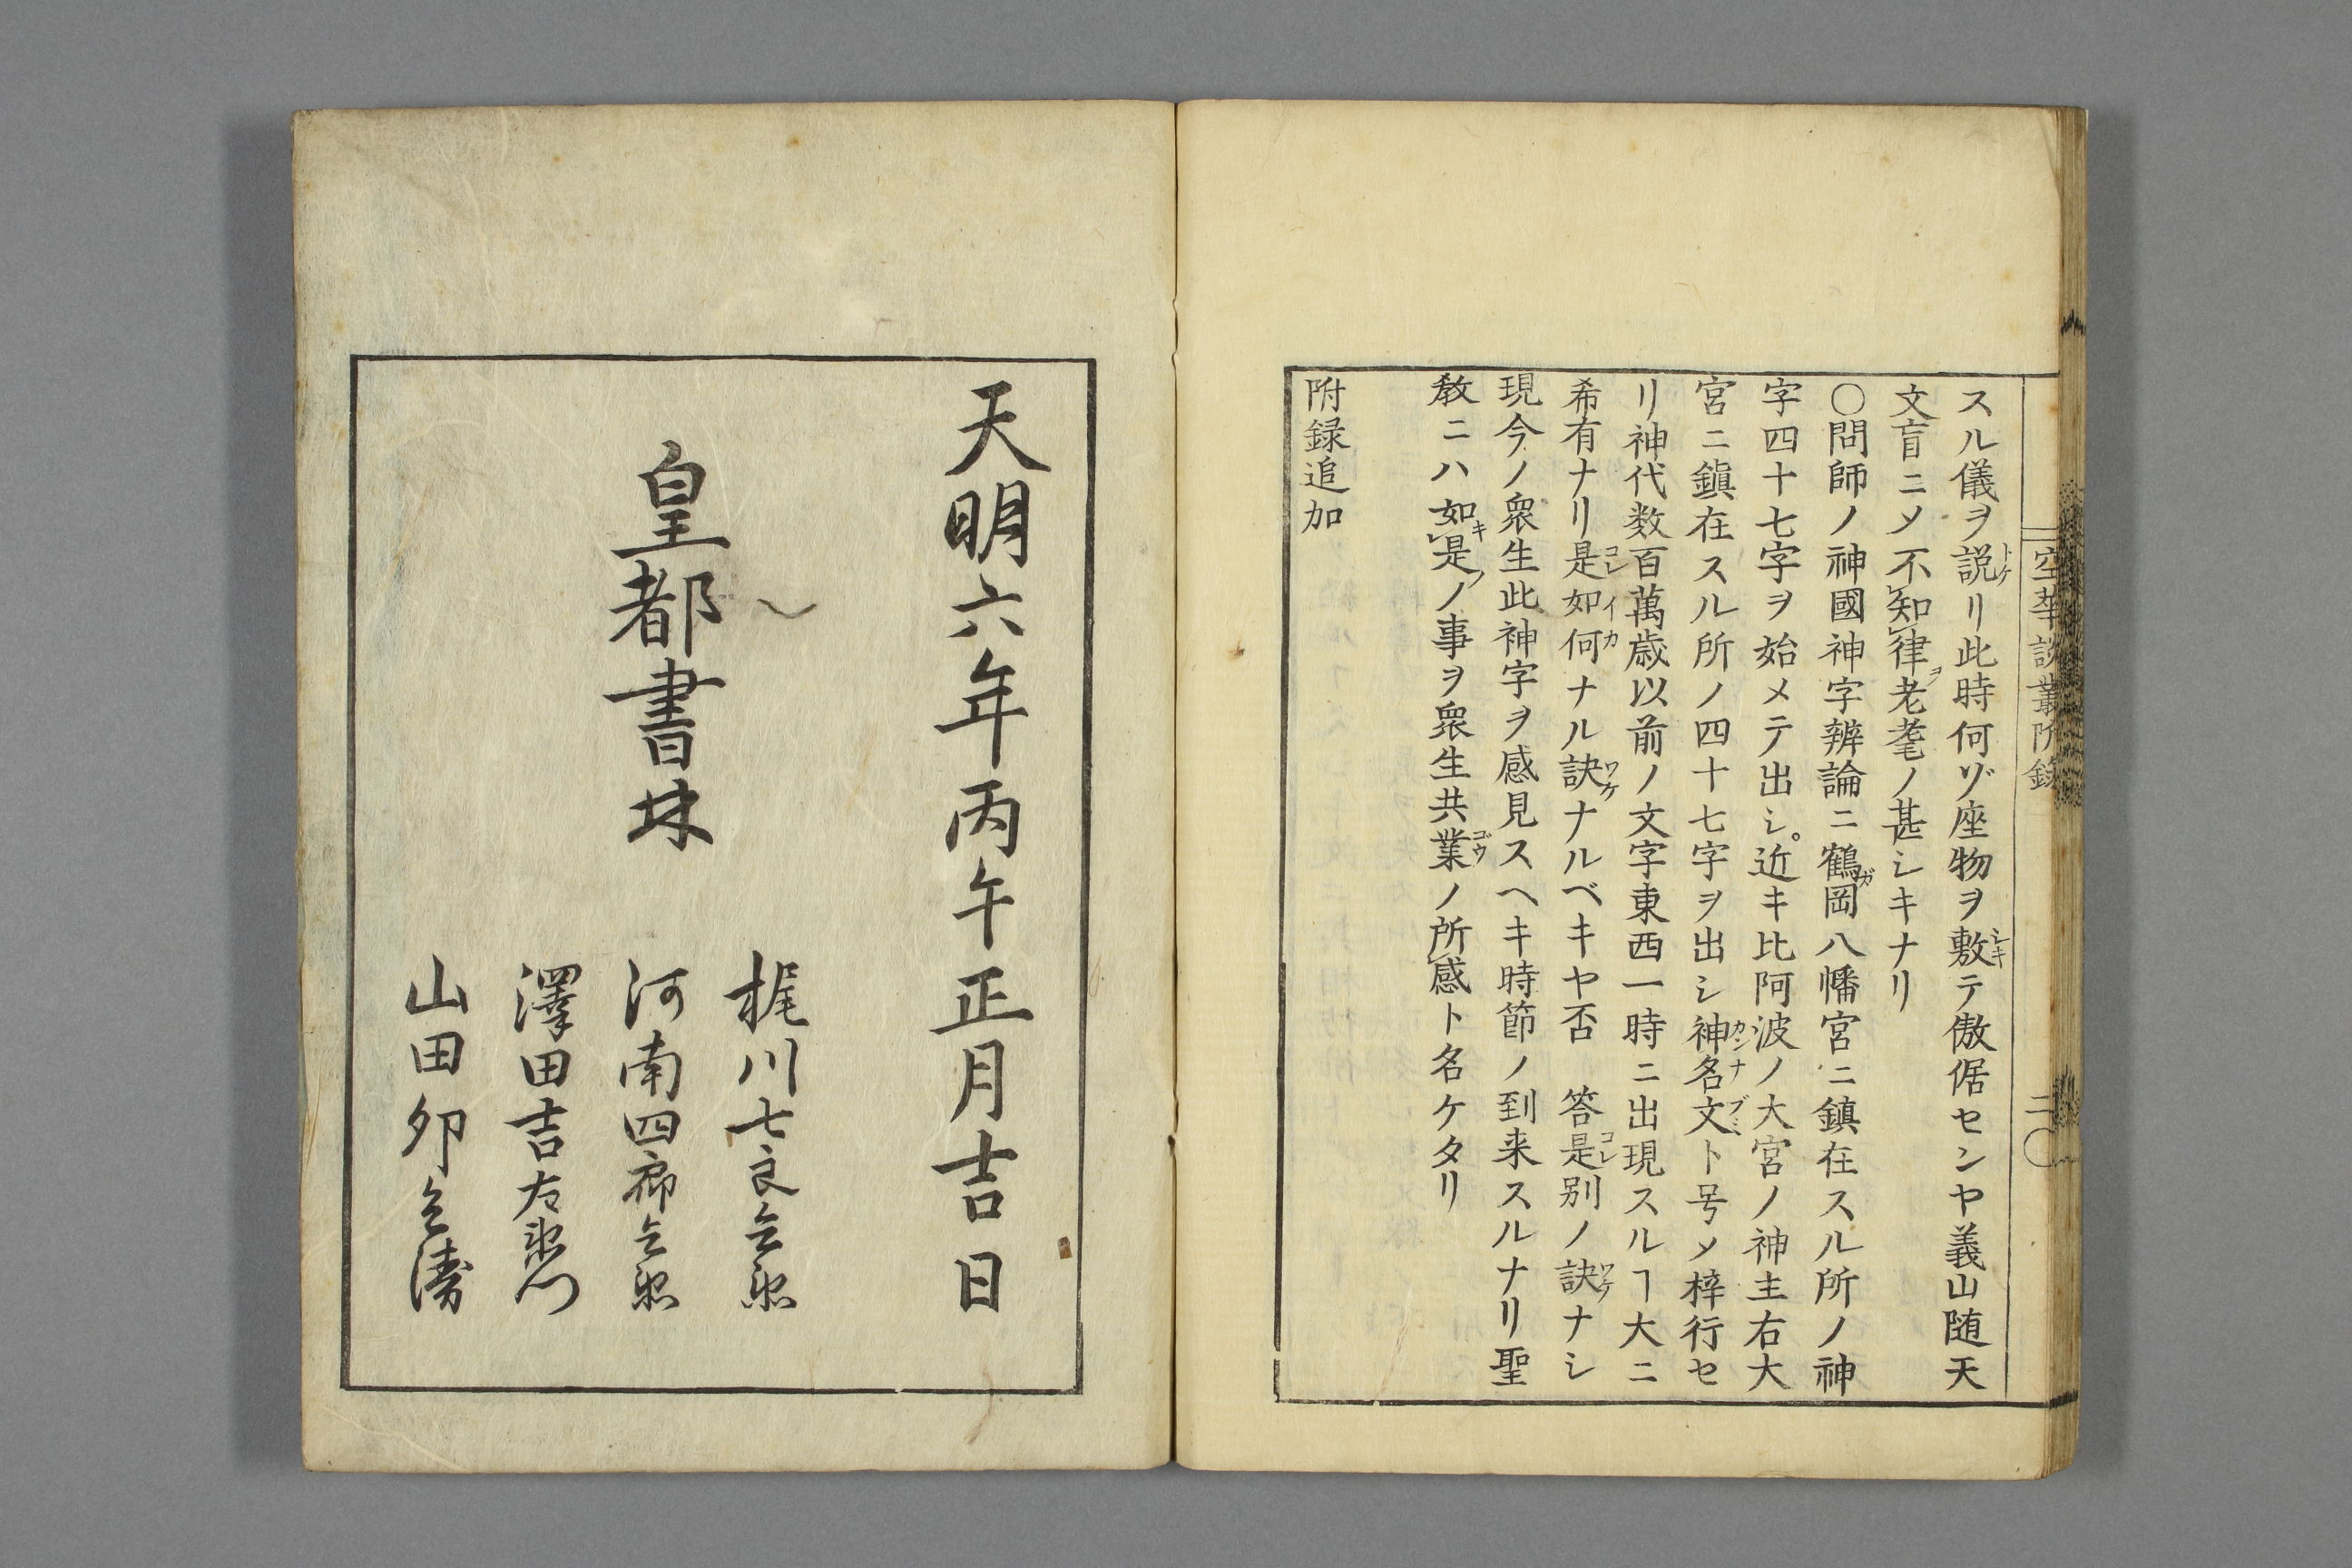 空華談叢附録 二〇
スル儀ヲ説リ此時何ゾ座物ヲ敷テ傲倨センヤ義山随天
文盲ニメ不知律老耄ノ甚シキナリ
〇問師ノ神國神字辨論ニ鶴岡八幡宮ニ鎮在スル所ノ神
字四十七字ヲ始メテ出シ。近キ比阿波ノ大宮ノ神主右大
宮ニ鎮在スル所ノ四十七字ヲ出シ神名文ト号メ梓行セ
リ神代数百萬歳以前ノ文字東西一時ニ出現スルヿ大ニ
希有ナリ是如何ナル訣ナルベキヤ否 答是別ノ訣ナシ
現今ノ衆生此神字ヲ感見スヘキ時節ノ到来スルナリ聖
教ニハ如是ノ事ヲ衆生共業ノ所感ト名ケタリ
附録追加
天明六年丙午正月吉日
皇都書林
梶川七良兵衛
河南四郎兵衛
澤田吉左衛門
山田卯兵衛